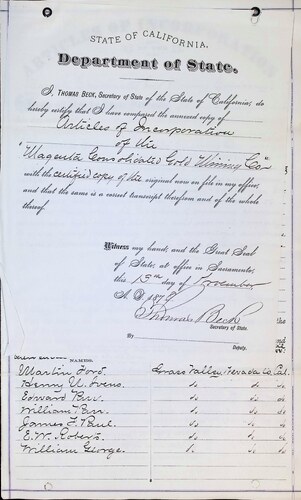 STATE OF CALIFORNIA,
Department of State.
I, THOMAS BECK, Secretary of State of the State of California, do
hereby certify that I have compared the annexed copy of
Articles of Incorporation
of the
"Magenta Consolidated Gold Mining Co"
with the certified copy of the original now on file in my office,
and that the same is a correct transcript therefrom and of the whole
thereof.
Witness my hand, and the Great Seal
of State, at office in Sacramento,
this 15th day of November
A. D. 1879
Thomas Beck
Secretary of State.
By
Deputy.
NAMES.
Martin Ford, Grass Valley Nevada Co. Cal.
Henry U. do do do
Edward do do do
William do do do
James do do do
E. W. Roberts do do do
William George, do do do